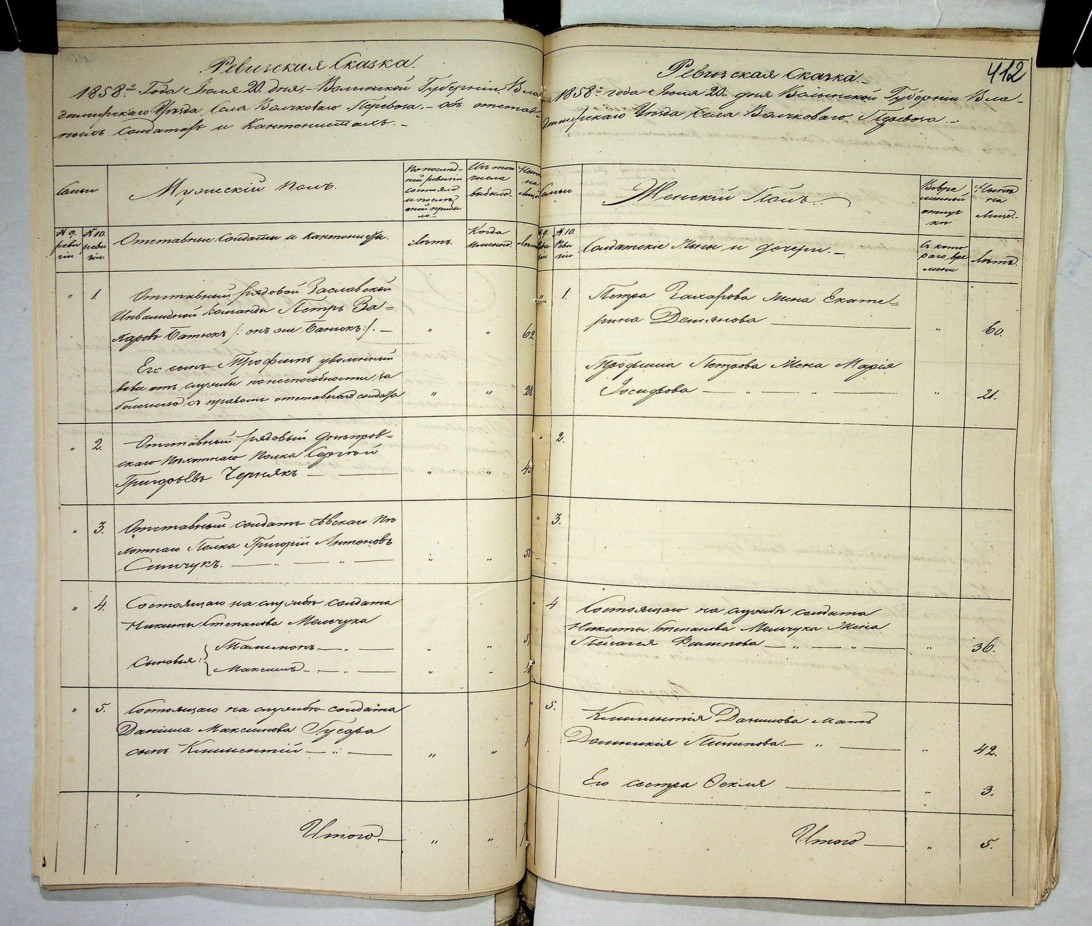 Ревизская Сказка.
1858го Года Июля 20 дня, Волынской Губернии, Вла-
димирскаго Уезда Села Волчковаго Перевоза, об отстав-
ных солдатах и Кантонистах. –
Семьи
Мужскій полъ.
По послед-
ней ревизіи
состояло
и после
оной прибы
ло.
Изъ того
числа
выбыло.
Ныне
на
Лицо
№ 9.
реви
зіи.
№ 10.
реви
зіи.
Отставные солдаты и кантонисты.
Летъ.
Когда
именно.
" 1.
Отставный рядовой Заславской
Инвалидной Команды Петръ За-
харовъ Батюкъ /: онъ же Баникъ :/. – " " 62
Его сынъ Трофимъ уволенный
вовсе отъ службы по неспособности, за
болезнію, съ правомъ отставнаго солдата " "
" 2.
Отставный рядовый Днепров-
скаго Пехотнаго Полка Сергей
Григорьевъ Чернякъ – " "
" 3.
Отставный солдатъ Пе
хотнаго Полка Григорій Антоновъ
Симчукъ. – " – " – " "
" 4.
Состоящаго на службе солдата
Никиты Степанова Мельчука
Сыновья: { – " – " "
Максимъ – " – " "
" 5.
Состоящаго на службе солдата
Даніила Максимова Гусара
сынъ Климентій – " – " "
Итого – " "
412
Ревизская Сказка –
1858го года Июля 20. дня Волынской Губерніи Вла-
димирскаго Уезда Села Волчковаго Перевоза –
Семьи
Женскій Полъ.
Во вре
менной
отлуч
ке
Ныне
на
Лицо.
№ 10.
Реви
зіи
Солдатскіе Жены и дочери. –
съ кото
раго вре
мени
Летъ.
" 1.
Петра Захарова жена Екате-
рина Демянова – " 60.
Трофима Петрова Жена Марія
Іосифова – " – " – " 21.
" 2.
" 3.
" 4
Состоящаго на службе солдата
Никиты Степанова Мельчука Жена
Пелагея Филипова – " – " – " 36.
" 5.
Климентія Данилова мать
Домникія Пилипова. – " – " 42.
Его сестра Фекля – " 3.
Итого – " 5.